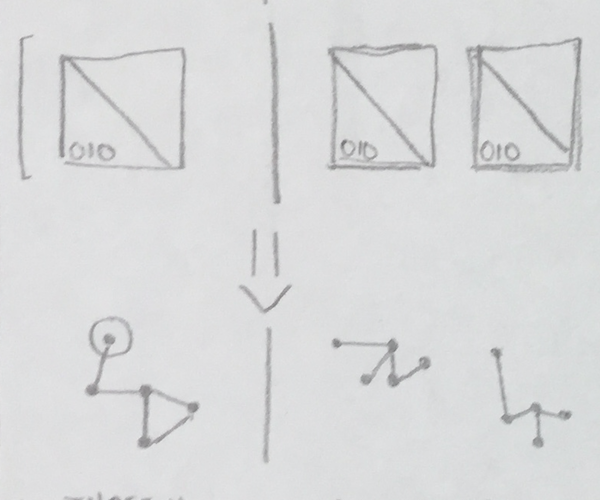 010 010 010